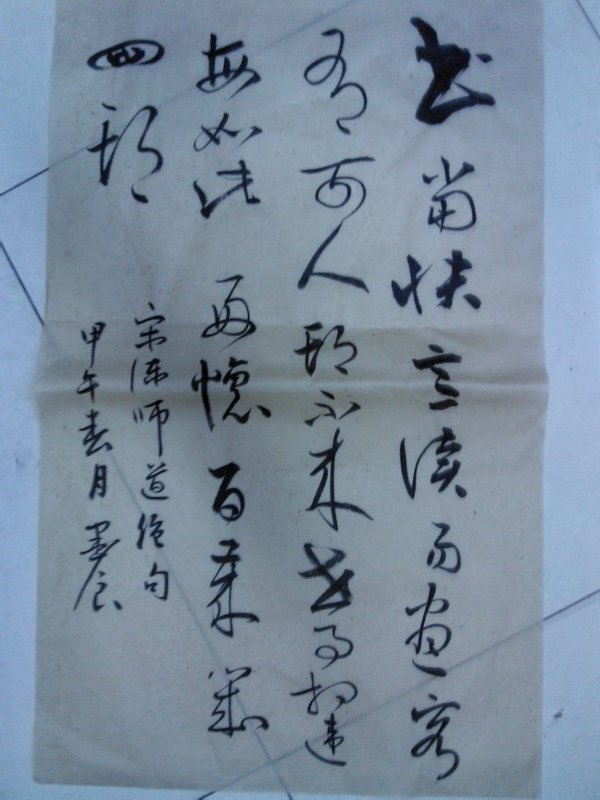 书當快意读易尽客
有可人期不来世事相违
每如此好懷百岁几
回開
宋陈师道绝句
甲午春月